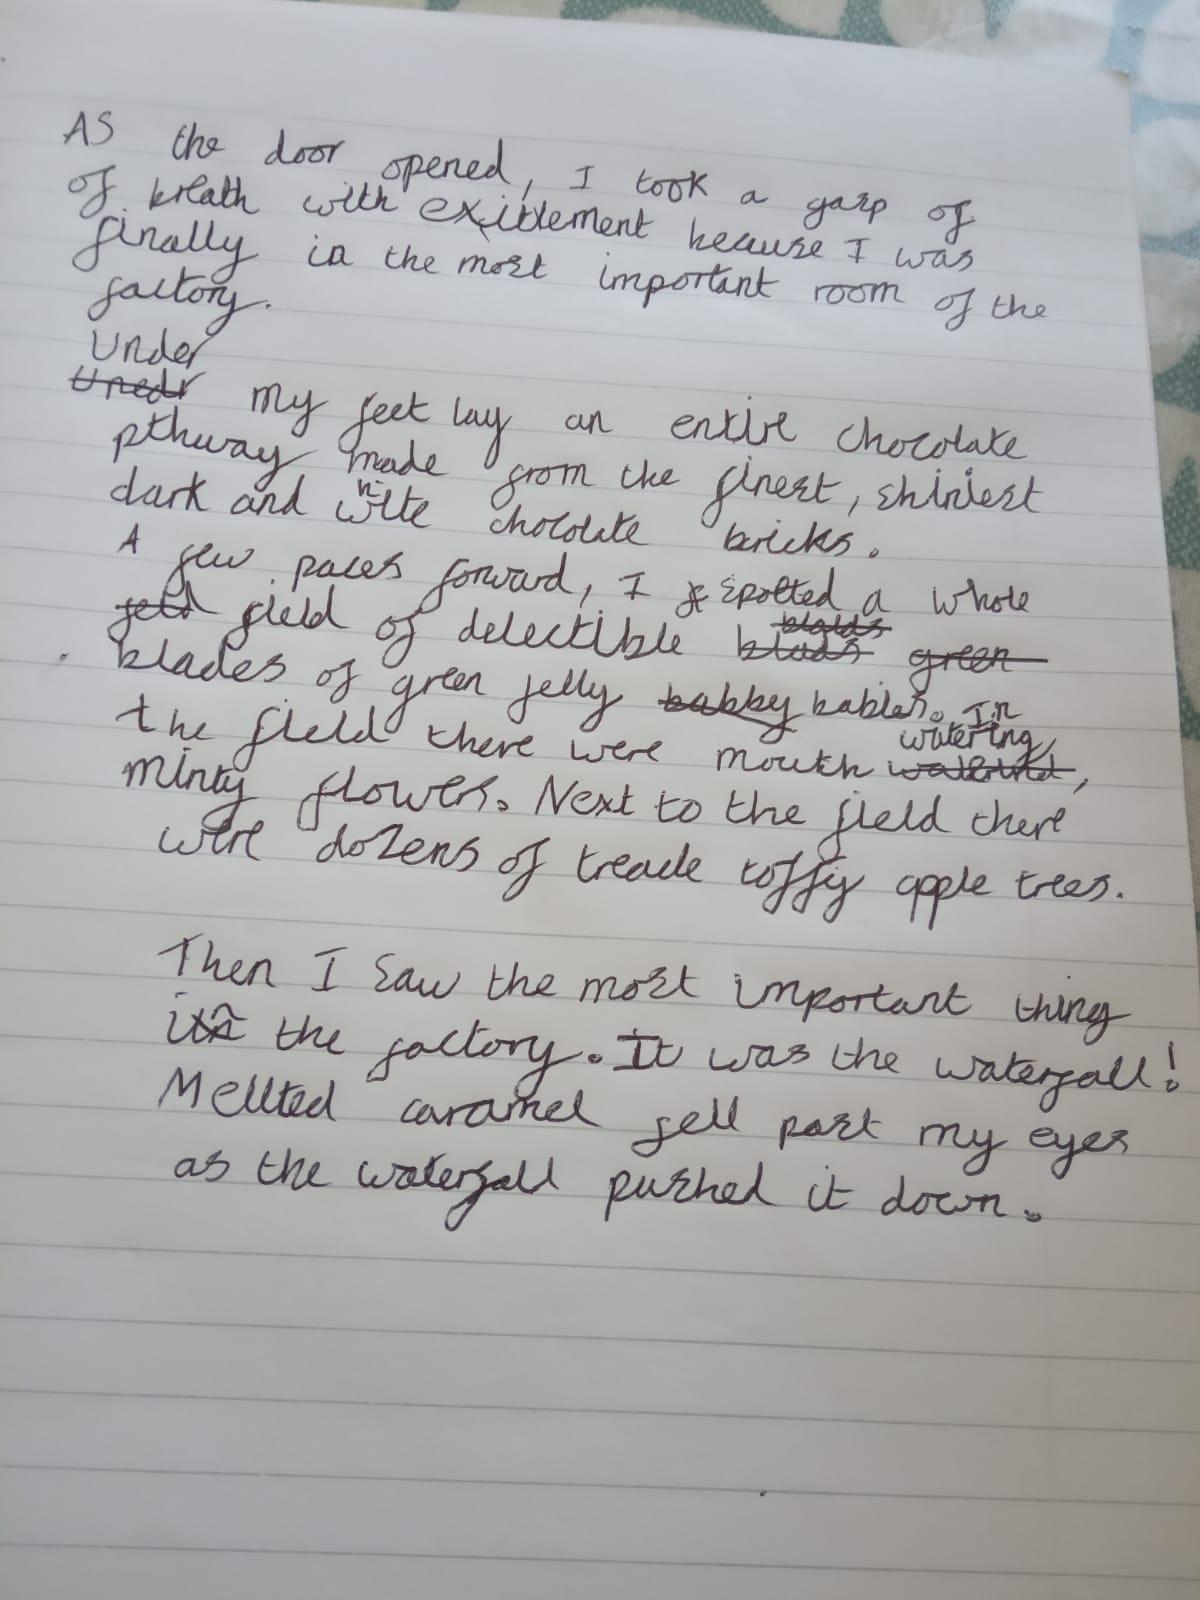 As the door opened, I took a gasp of
of breath with exitement because I was
finally in the most important room of the
factory.
Under
Unedr my feet lay an entire chocolate
pthway made from the finest, shiniest
dark and white chocolate bricks.
A few paces forward, I spotted a whole
field of delectible green
blades of green jelly babby babies. In
the field there were mouth watering,
minty flowers. Next to the field there
were dozens of treacle toffy apple trees.
Then I saw the most important thing
in the factory. It was the waterfall!
Mellted caramel fell past my eyes
as the waterfall pushed it down.